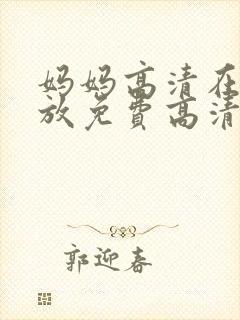 妈妈高清在
放免费高清
郭迎春